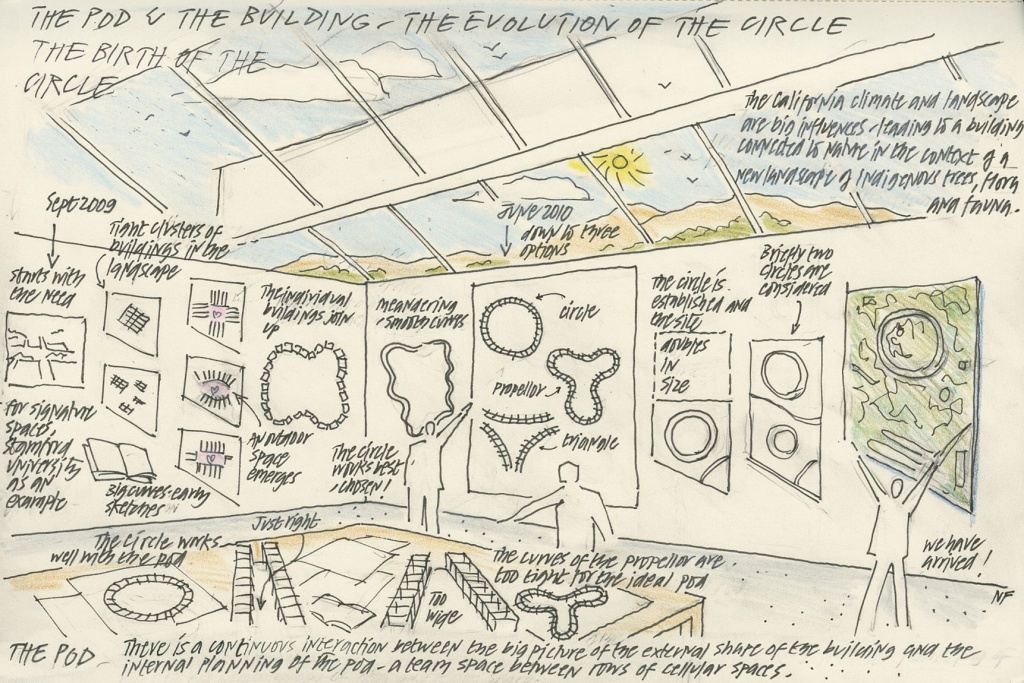 THE POD & THE BUILDING - THE EVOLUTION OF THE CIRCLE
THE BIRTH OF THE
CIRCLE
The California climate and landscape
are big influences - leading to a building
connected to nature in the context of a
new landscape of indigenous trees, flora
and fauna.
Sept 2009
starts with
the need
for signature
space,
Stamford
University
as an
example
Tight clusters of
buildings in the
landscape
Big curves - early
sketches
An outdoor
space
emerges
The individual
buildings join
up
meandering
- smooth curves
The circle
works best
, chosen!
June 2010
down to three
options
circle
propellor
triangle
The circle is
established and
the site
doubles
in
size
Briefly two
circles are
considered
we have
arrived!
NF
The circle works
well with the pod
Just right
Too
wide
The curves of the propellor are
too tight for the ideal pod
THE POD - There is a continuous interaction between the big picture of the external share of the building and the
internal planning of the pod - a team space between rows of cellular spaces.